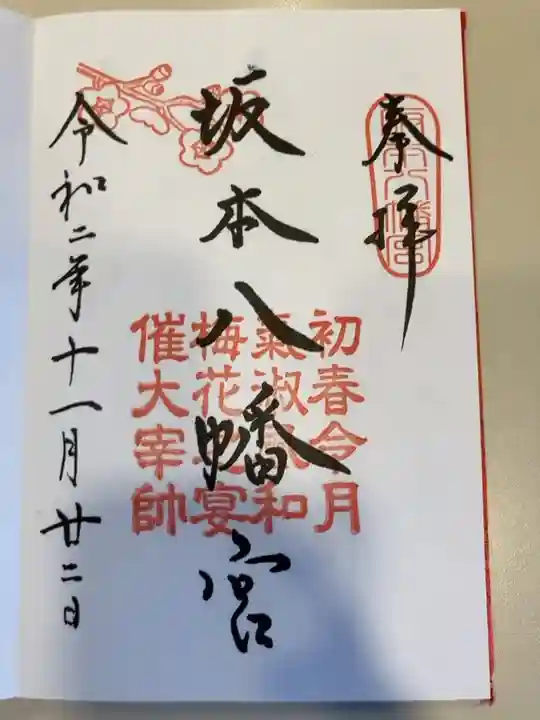 奉拝
坂本八幡宮
初春令月
氣淑風和
梅花之宴
催大宰帥
坂本八幡宮
令和二年十一月廿二日